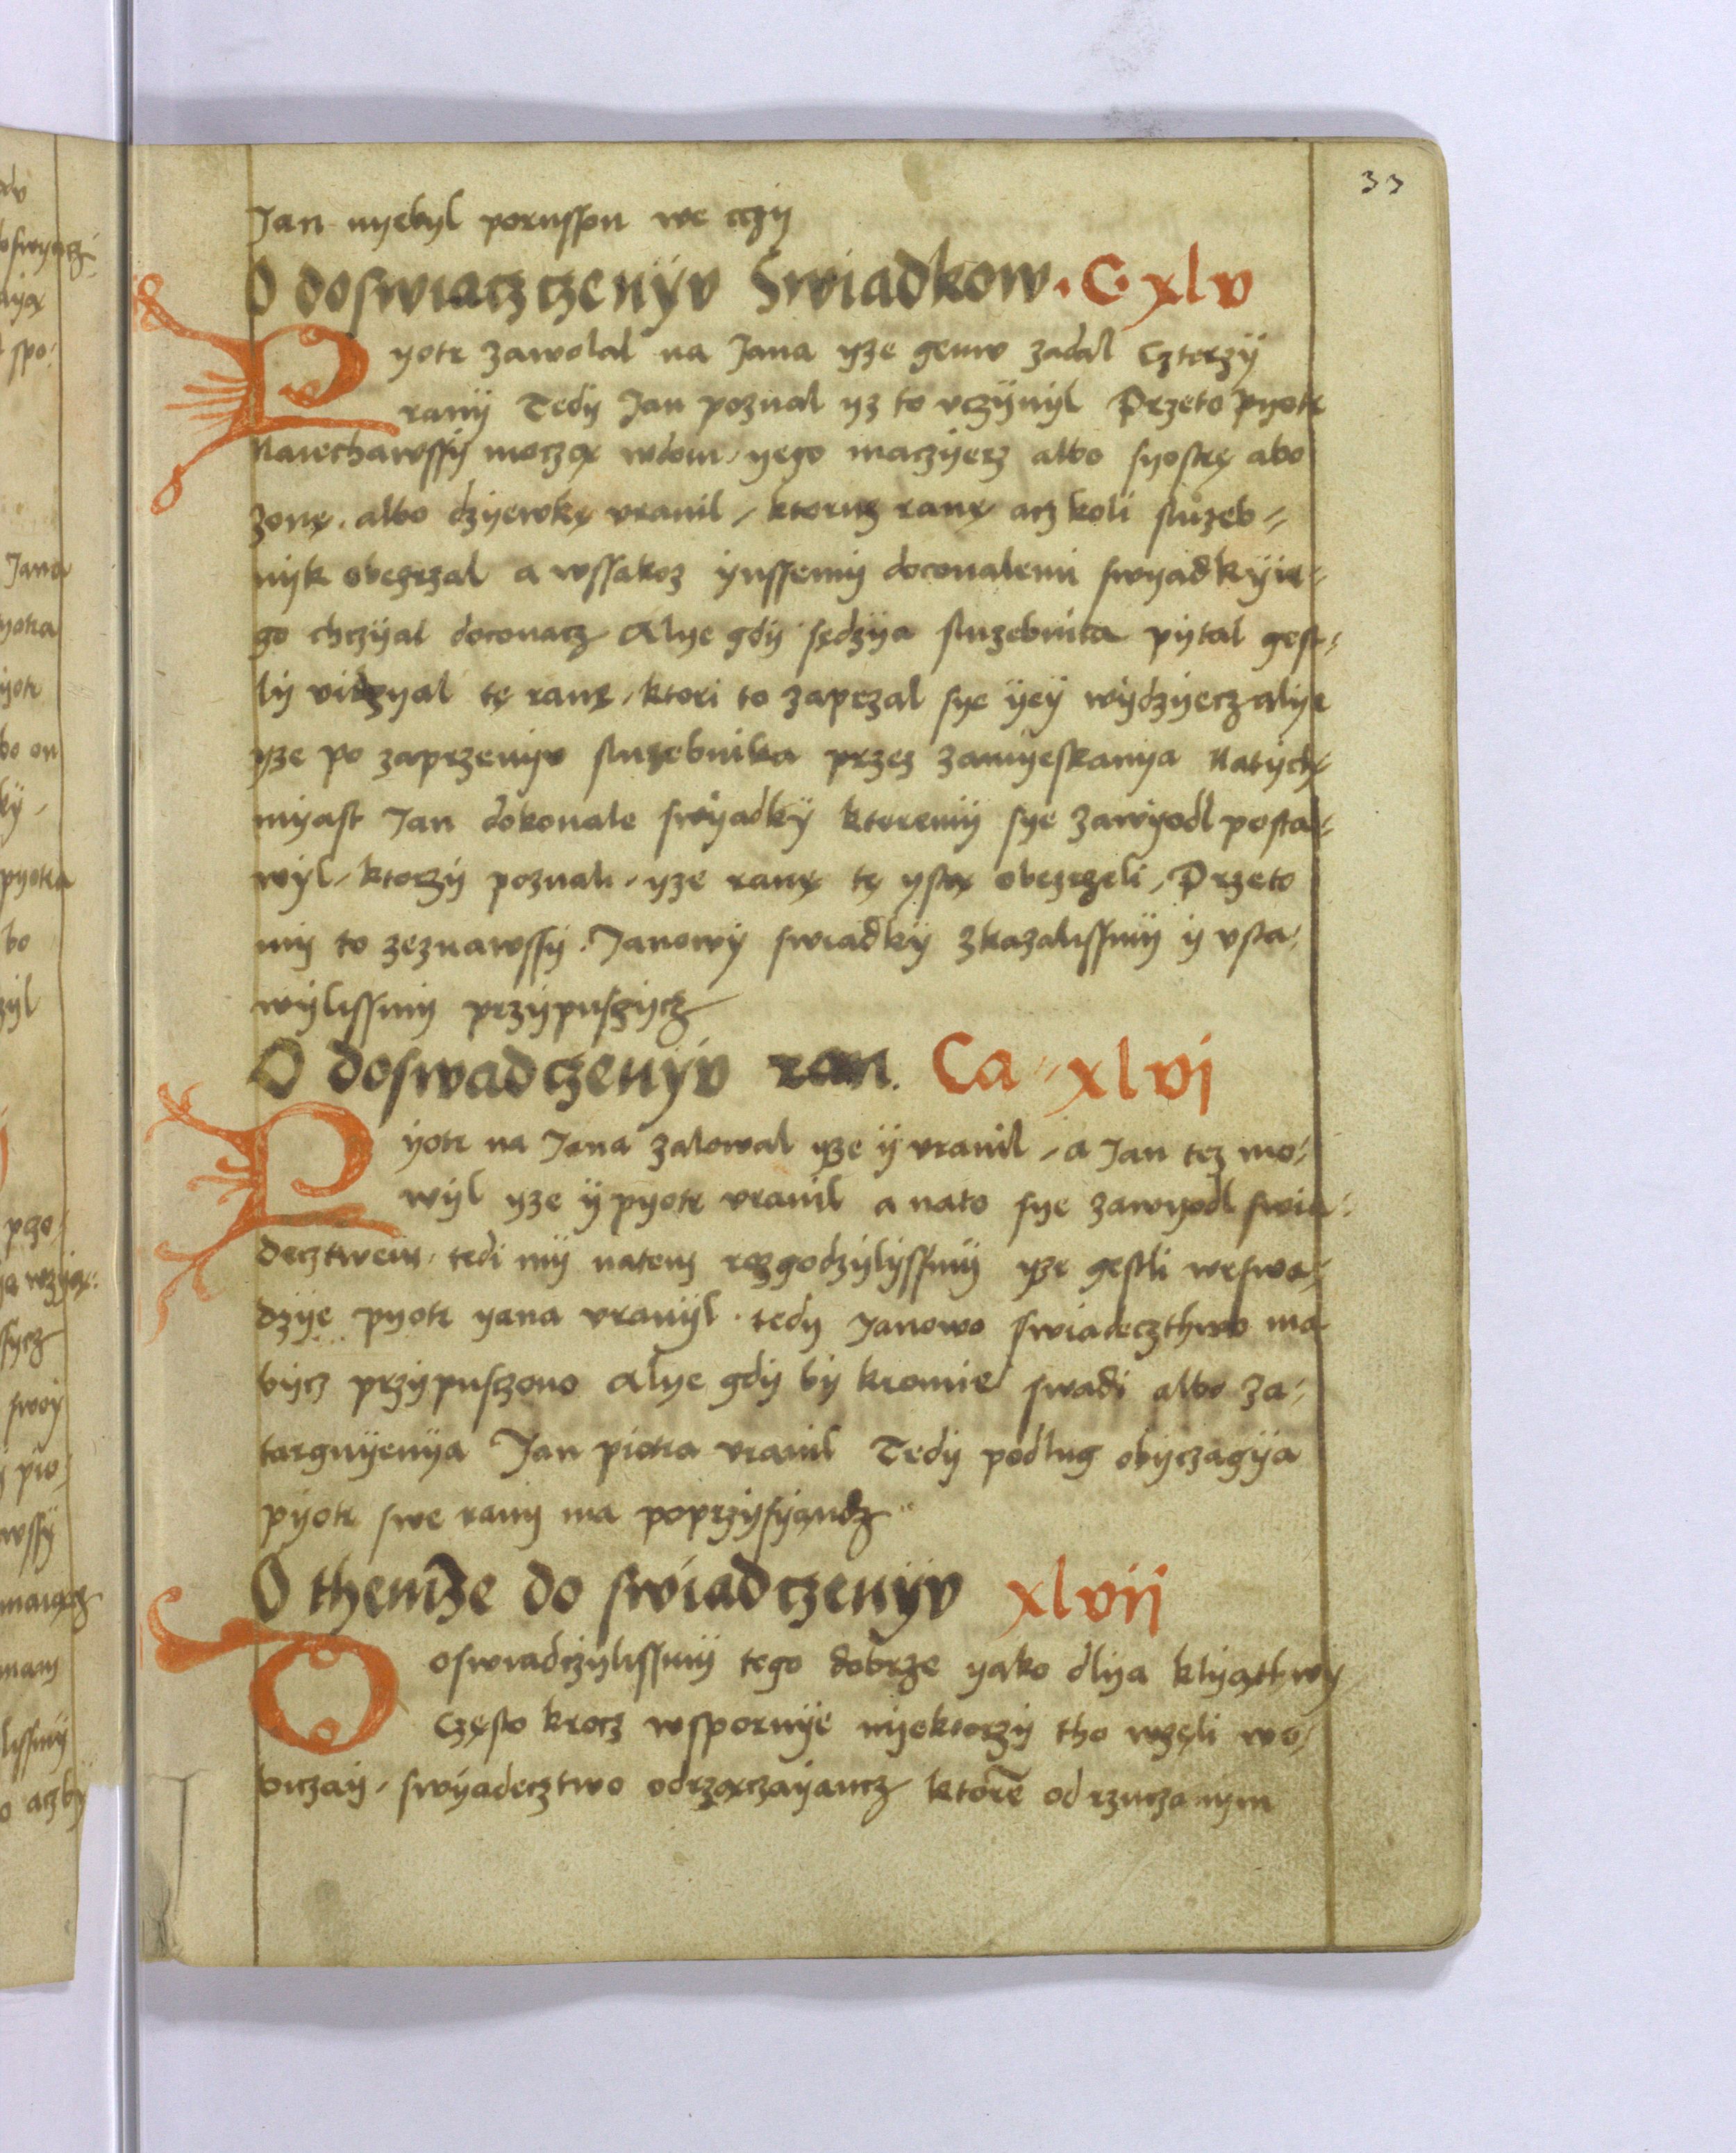 33
Jan nyebyl poruſſon we cczÿ
O doſwiaczczenÿv Swiadkow · C · xlv
Pyotr zawolal na Jana yze gemv zadal Czterzÿ
ranÿ Tedÿ Jan poznal yz to vczÿnÿl Przeto pyotr
Naiechawſſÿ moczą wdom yego maczÿerz albo ſyoſtrę abo
zonę albo dzyewkę vranil / ktorus ranę acz koli ſluzeb=
nÿk obezrzal a wſſakoz ÿnſſemÿ doconalemi ſwyadkÿ ie=
go chczÿal doconacz Alye gdÿ ſędzÿa ſluzebnika pÿtal geſt=
lÿ vidzyal tę ranę / ktori to zaprzal ſye ÿeÿ wÿdzÿecz alye
yze po zaprzenÿv ſluzebnika przez zamyeſkanya Natÿch=
mÿaſt Jan dokonale ſwÿadkÿ ktoremÿ ſye zawÿodl poſta=
wÿl / ktorzÿ poznali / yze ranę tę yſtą obezrzeli / Przeto
mÿ to zeznawſſÿ Janowÿ ſwiadkÿ zkazaliſſmÿ ÿ vſta=
wÿliſſmÿ przÿpuſczÿcz
O doſwadczenÿv ran. Ca xlvi
Pÿotr na Jana zalowal yze ÿ vranil / a Jan tez mo=
wÿl yze ÿ pyotr vranil a nato ſye zawyodl ſwia=
decztwem tedi mÿ natem rozgodzÿlÿſſmÿ yze geſtli weſwa=
dzÿe pyotr yana vranÿl tedy Janowo ſwiadeczthwo ma
bÿcz przÿpuſczono Alye gdÿ bÿ kromie ſwadi albo za=
targnÿenÿa Jan piotra vranil Tedÿ podlug obÿczagÿa
pÿotr ſwe ranÿ ma poprzÿſyandz
O themze do ſwiadczenÿv xlvij
Doſwiadczÿliſſmÿ tego dobrze yako dlÿa klÿąthwy
Częſto krocz wſpornÿe nÿektorzÿ tho wzęli wo=
biczaÿ / ſwÿadecztwo odrzączaÿancz ktorē od rzuczanÿm